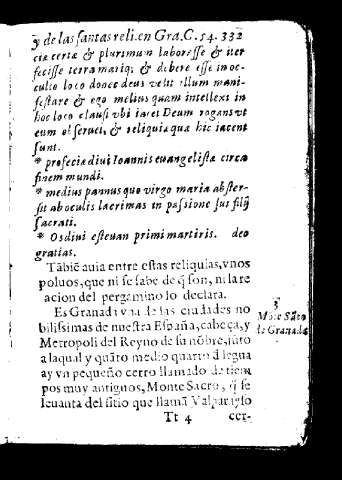 y de las santas reli. en Gra. C. 54. 332
cia certa & plurimun laborasse & iter
fecisse terra mariq; & debere esse in oc-
culto loco donec deus velit illum mani-
festare & ego melius quam intellexi in
hoc loco clausi vbi iacet Deum rogans vt
eum obseruet, & reliquia qua hic iacent
sunt.
* profecia diui Ioannis euangelista circa
finem mundi.
* medius pannus quo virgo maria abster-
sit ab oculis lacrimas in passione sui filij
sacrati.
* Os diui esteuan primi martiris. deo
gratias.
Tãbiẽ auia entre estas reliquias, vnos
poluos, que ni se sabe de q̃ son, ni la re
acion del pergamino lo declara.
Es Granada vna de las ciudades no
bilissimas de nuestra España, cabeça, y
Metropoli del Reyno de su nõbre, iũto
a laqual y quãto medio quarto d̃ legua
ay vn pequeño cerro llamado de tiem
pos muy antiguos, Monte Sacro, q̃ se
leuanta del sitio que llamã Valparayso
3
Mõte Sãto
de Granada
Tt 4 cer-